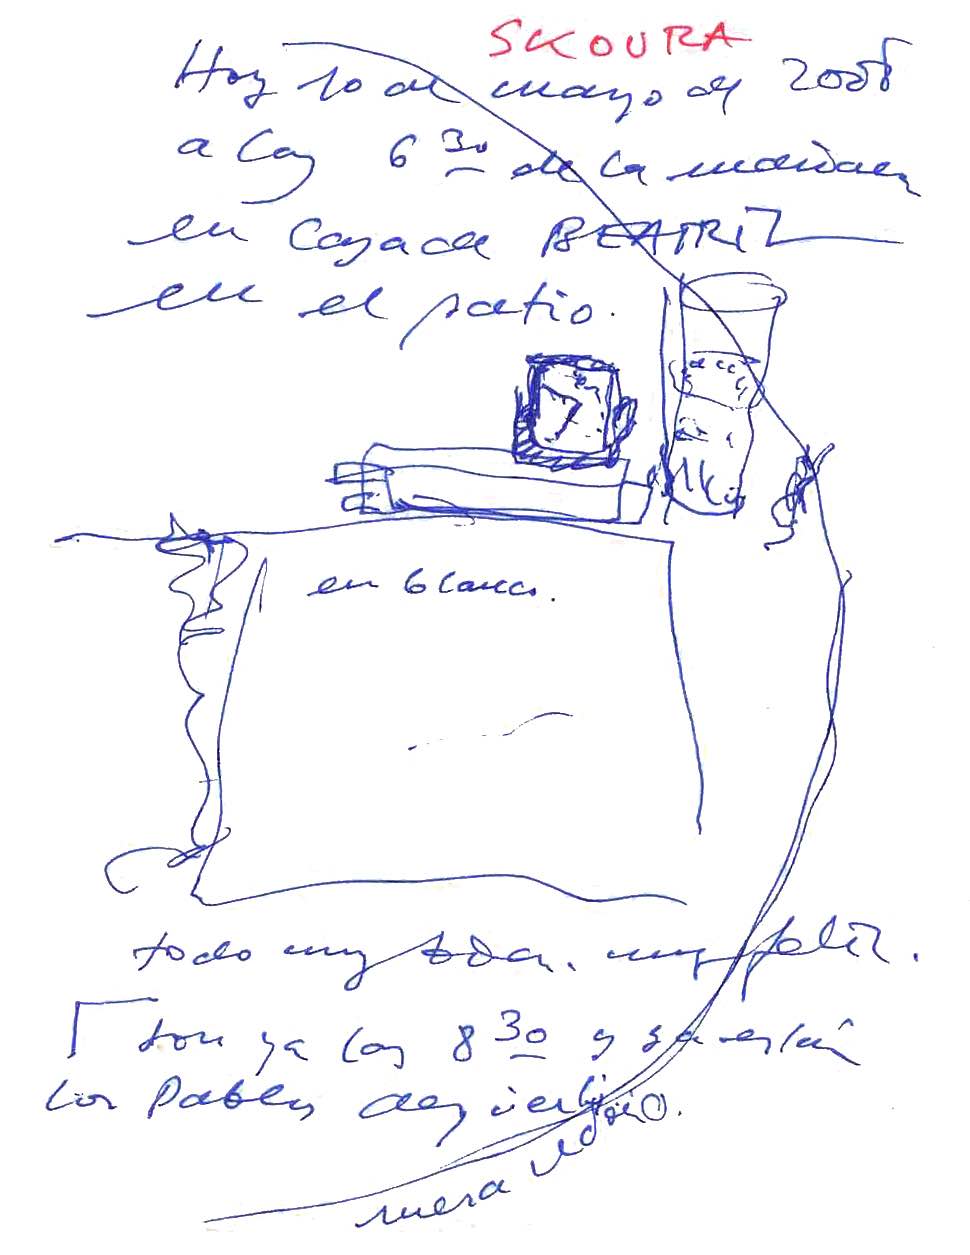 SKOURA
Hoy 10 de mayo de 2008
a las 6 30 de la mañana
en Casa de BEATRIZ
en el patio.
en blanco.
todo muy bien. muy feliz.
son ya las 8 30 y ya están
los Pables
nuera